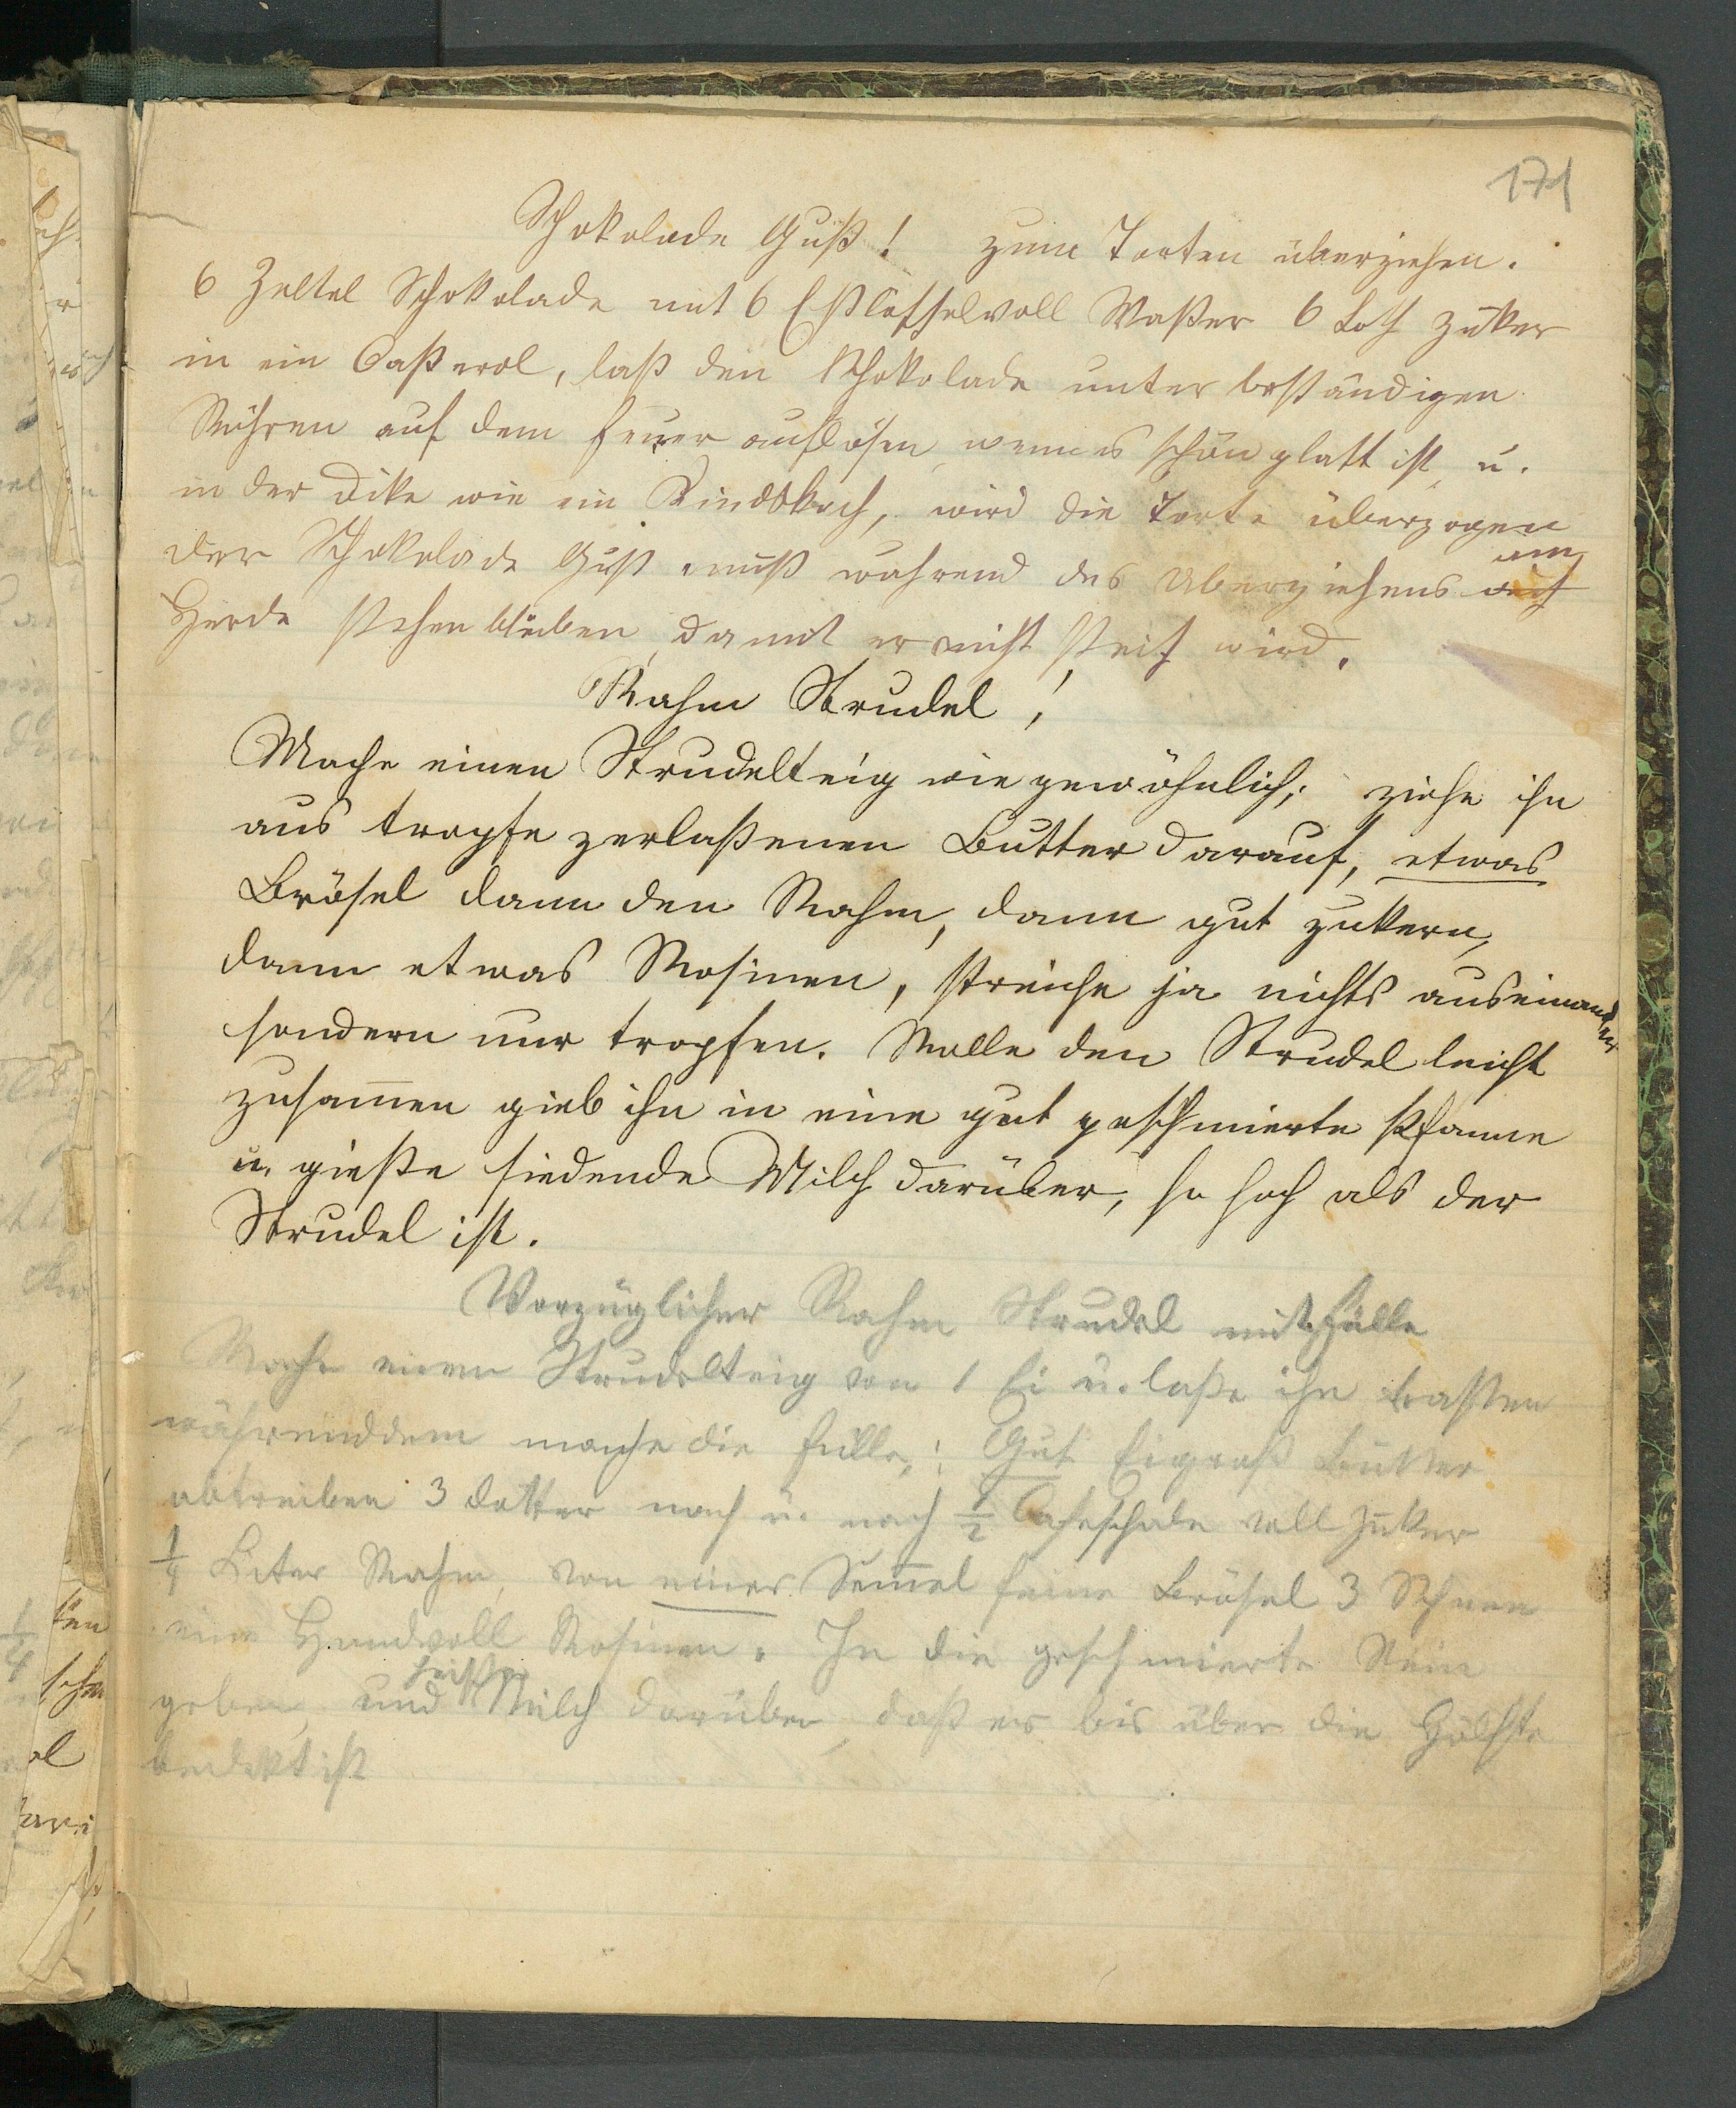 171
Schokolade Guß! zum Torten überziehen.
6 Zeltel Schokolade mit 6 Eßlöffelvoll Waßer 6 Loth Zuker
in ein Caßerol, laß den Schokolade unter beständigen
Rühren auf dem Feuer auflösen, wenn es schön glatt ist, u.
in der Dike wie ein Kindskoch, wird die Torte überzogen
der Schokolade Guß muß während des Uberziehens auf am
Herde stehen bleiben, damit er nicht steif wird.
Rahm Strudel!
Mache einen Strudelteig wie gewöhnlich; ziehe ihn
aus tropfe zerlaßenen Butter darauf, etwas
Brösel dann den Rahm, dann gut zukern,
dann etwas Rosinen, streiche ja nichts auseinander
sondern nur tropfen. Rolle den Strudel leicht
zusam̅en gieb ihn in eine gut geschmierte Pfanne
u. gieße siedende Milch darüber, so hoch als der
Strudel ist.
Vorzüglicher Rahm Strudel mit Fülle
Mache einen Strudelteig von 1 Ei u. laße ihn rasten
währenddem mache die Fülle,: Gut Eigroß Butter
abtreiben 3 Dotter nach u. nach 1/2 Cafeschale voll Zuker
1/4 Liter Rahm, von einer Sem̅el feine Brösel 3 Schnee
eine Handvoll Rosinen. In die geschmierte Rein
geben, und heiße Milch darüber, daß er bis über die Hälfte
bedekt ist